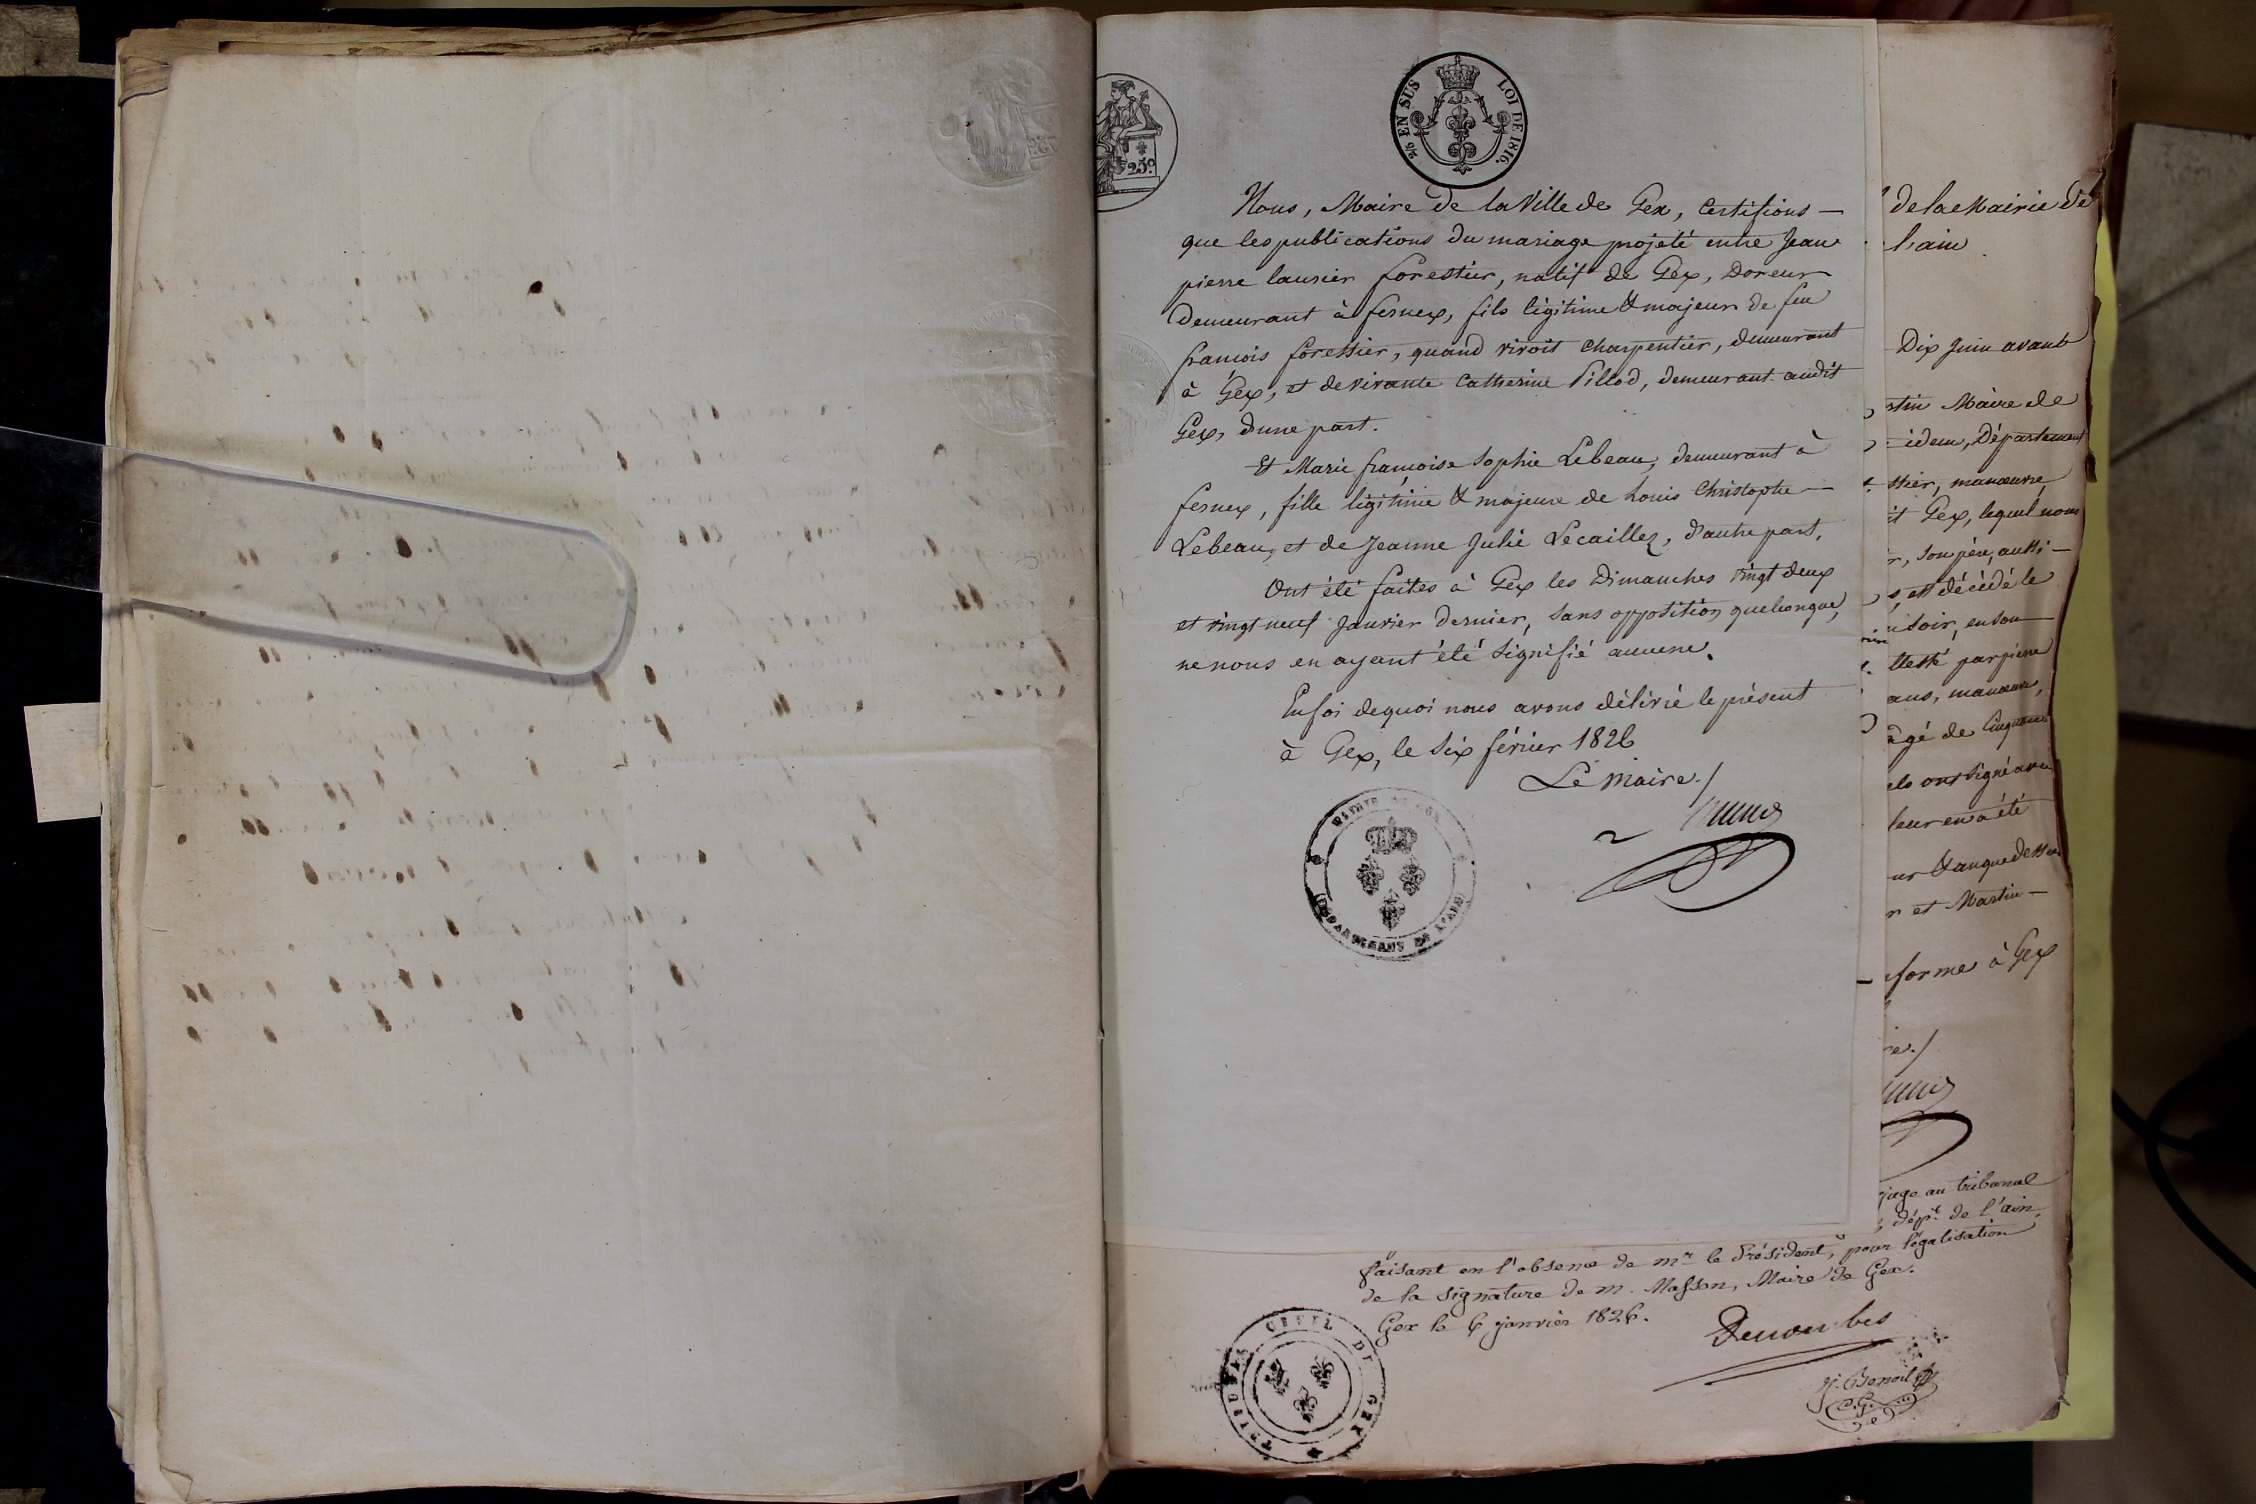 2/5 EN SUS LOI DE 1816.
25c.
Nous, Maire de la Ville de Gex, Certifions —
que les publications du mariage projeté entre Jean
pierre laurier forestier, natif de Gex, Doreur
Demeurant à fernex, fils légitime & majeur de feu
françois forestier, quand vivoit Charpentier, demeurant
à Gex, et de vivante Catherine Pillod, demeurant audit
Gex, d'une part.
Et Marie françoise Sophie Lebeau, demeurant à
fernex, fille légitime & majeure de Louis Christophe —
Lebeau, et de Jeanne Julie Lecaillez, d'autre part,
Ont été faites à Gex les Dimanches vingt deux
et vingt neuf Janvier dernier, sans opposition quelconque,
ne nous en ayant été Signifié aucune.
En foi de quoi nous avons délivré le présent
à Gex, le Six février 1826
Le Maire ./
MAIRIE DE GEX
DE L'AIN
de la Mairie de
l'ain
Dix Juin avant
stin Maire de
idem, Département
stier, manœuvre
it Gex, lequel nous
r, son père, aussi —
s, est décédé le
u soir, en son —
ttesté par pierre
ans, manœuvre,
âgé de Cinquante
els ont signé avec
leur en a été
ur & an que dessus
r et Martin —
nforme à Gex
re ./
juge au tribunal
, dépt. de l'ain,
faisant en l'absence de mr. le Président, pour légalisation
de la signature de m. Masson, Maire de Gex.
Gex le 6 janvier 1826.
TRIBUNAL CIVIL DE GEX
J. Benoit
C. G.